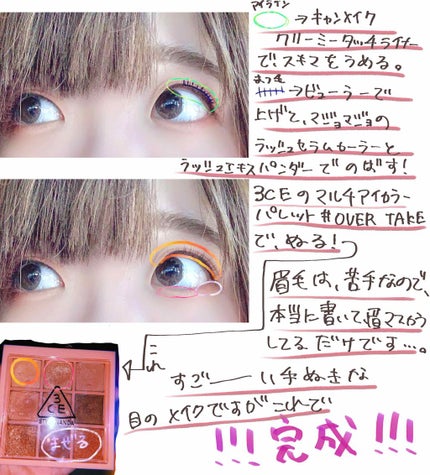 アイライン
→キャンメイク
クリーミータッチライナー
で、スキマをうめる。
まつ毛
→ビューラーで
上げて、マジョマジョの
ラッシュセラムカーラーと
ラッシュエキスパンダーでのばす!
3CEのマルチアイカラー
パレット#OVER TAKE
で、ぬる!
眉毛は、苦手なので、
本当に書いて、眉マスカラ
してるだけです…。
これ
すご——い手ぬきな
目のメイクですがこれで
!!!完成!!!
3
CE
まぜる